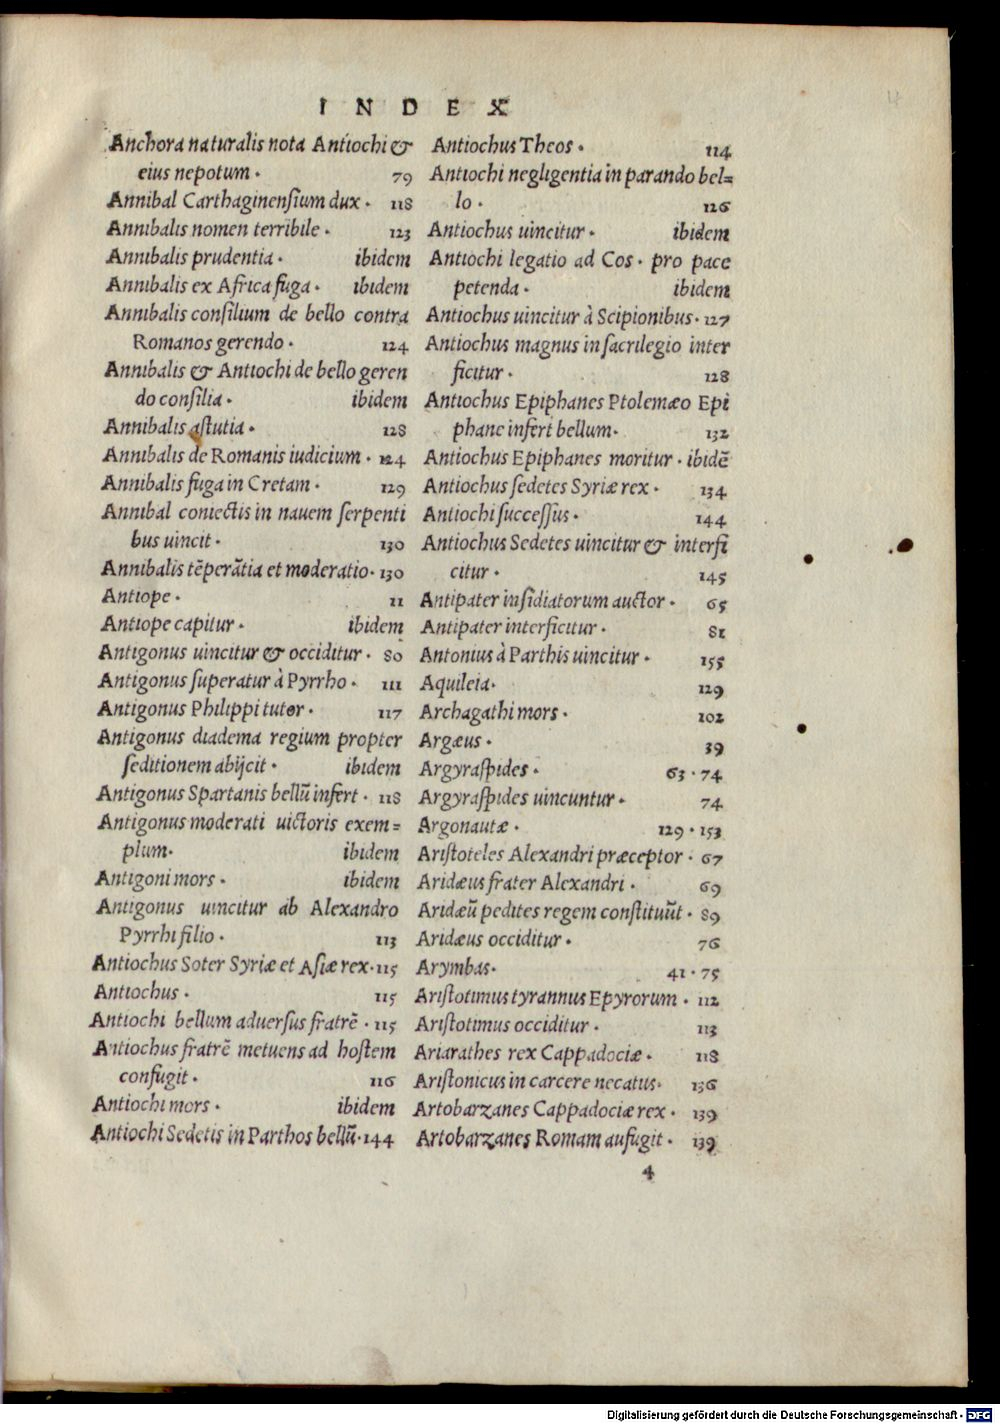 INDEX
Anchora naturalis nota Antiochi &
eius nepotum. 79
Annibal Carthaginensium dux. 118
Annibalis nomen terribile. 123
Annibalis prudentia. ibidem
Annibalis ex Africa fuga. ibidem
Annibalis consilium de bello contra
Romanos gerendo. 124
Annibalis & Antiochi de bello geren
do consilia. ibidem
Annibalis astutia. 128
Annibalis de Romanis iudicium. 124
Annibalis fuga in Cretam. 129
Annibal coniectis in nauem serpenti
bus uincit. 130
Annibalis tēperātia et moderatio. 130
Antiope. 11
Antiope capitur. ibidem
Antigonus uincitur & occiditur. 80
Antigonus superatur à Pyrrho. 111
Antigonus Philippi tutor. 117
Antigonus diadema regium propter
seditionem abijcit. ibidem
Antigonus Spartanis bellū infert. 118
Antigonus moderati uictoris exem=
plum. ibidem
Antigoni mors. ibidem
Antigonus uincitur ab Alexandro
Pyrrhi filio. 113
Antiochus Soter Syriæ et Asiæ rex. 115
Antiochus. 115
Antiochi bellum aduersus fratrē. 115
Antiochus fratrē metuens ad hostem
confugit. 116
Antiochi mors. ibidem
Antiochi Sedetis in Parthos bellū. 144
Antiochus Theos. 114
Antiochi negligentia in parando bel=
lo. 126
Antiochus uincitur. ibidem
Antiochi legatio ad Cos. pro pace
petenda. ibidem
Antiochus uincitur à Scipionibus. 127
Antiochus magnus in sacrilegio inter
ficitur. 128
Antiochus Epiphanes Ptolemæo Epi
phane infert bellum. 132
Antiochus Epiphanes moritur. ibidē
Antiochus sedetes Syriæ rex. 134
Antiochi successus. 144
Antiochus Sedetes uincitur & interfi
citur. 145
Antipater insidiatorum auctor. 65
Antipater interficitur. 81
Antonius à Parthis uincitur. 155
Aquileia. 129
Archagathi mors. 102
Argæus. 39
Argyraspides. 63. 74
Argyraspides uincuntur. 74
Argonautæ. 129. 153
Aristoteles Alexandri præceptor. 67
Aridæus frater Alexandri. 69
Aridæū pedites regem constituūt. 89
Aridæus occiditur. 76
Arymbas. 41. 75
Aristotimus tyrannus Epyrorum. 112
Aristotimus occiditur. 113
Ariarathes rex Cappadociæ. 118
Aristonicus in carcere necatus. 136
Artobarzanes Cappadociæ rex. 139
Artobarzanes Romam aufugit. 139
4
Digitalisierung gefördert durch die Deutsche Forschungsgemeinschaft - DFG